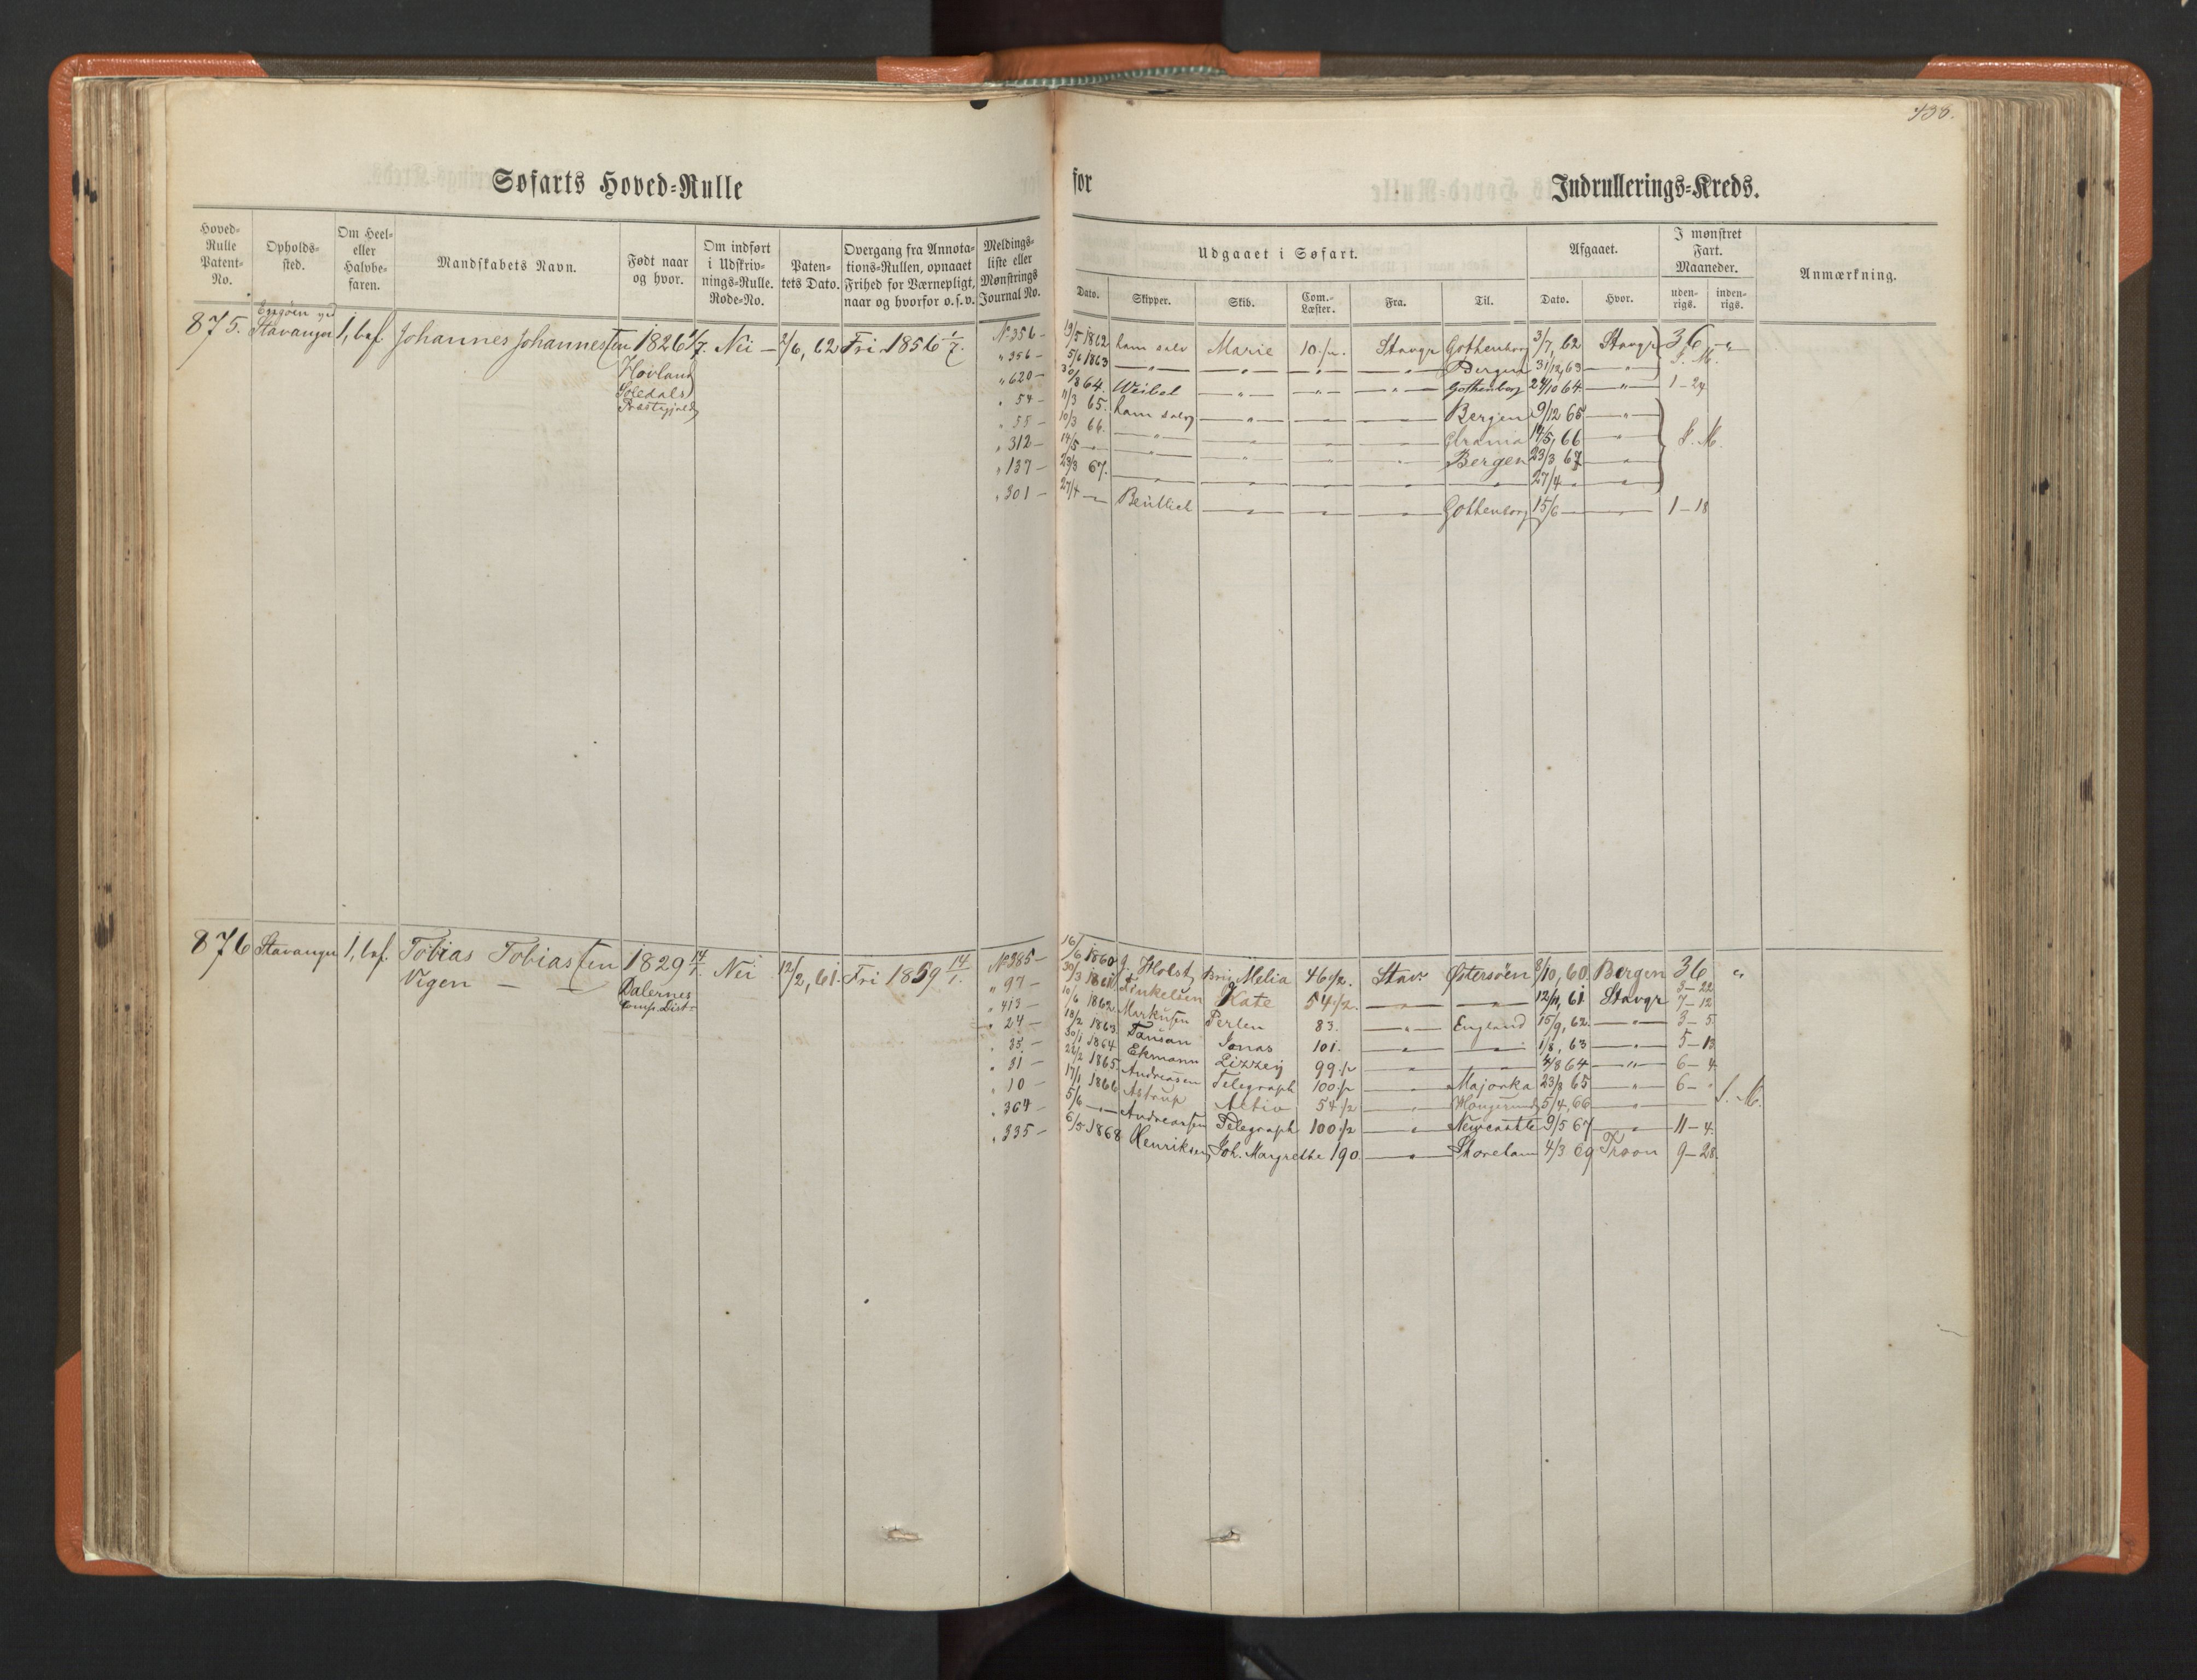 438.
Søfarts Hoved-Rulle for Indrullerings-Kreds.
Hoved-Rulle Patent-No.
Opholds-sted.
Om Heel- eller Halvbe-faren.
Mandskabets Navn.
Født naar og hvor.
Om indført i Udskriv-nings-Rulle. Rode-No.
Paten-tets Dato.
Overgang fra Annota-tions-Rullen, opnaaet Frihed for Værnepligt, naar og hvorfor o.s.v.
Meldings-liste eller Mønstrings Journal No.
Udgaaet i Søfart.
Dato. Skipper. Skib. Com.-Læster. Fra. Til.
Afgaaet.
Dato. Hvor.
I mønstret Fart. Maaneder.
uden-rigs. inden-rigs.
Anmærkning.
875. Stavanger 1, bef. Johannes Johannessen 1826 1/7. Nei — 2/6, 62 Fri 1856 1/7.
Hovland
Præstegjeld
No 356 — 19/5 1862 ham selv Marie 10 1/2. Stavgr Gothenborg 3/7, 62 Stavgr 36 "
" 356 — 5/6 1863 — " — " — " — " Bergen 31/12, 63 — " — S. M.
" 620 — 30/8 64. Weibel — " — " — " Gothenborg 24/10 64 — " — 1-24
" 54 — 11/3 65. ham selv — " — " — " Bergen 9/12 65 — " —
" 55 — 10/3 66. — " — " — " — " 14/5, 66 — " — S. M.
" 312 — 14/5 — " — " — " — " — Bergen 23/3 67 — " —
" 137 — 23/3 67. — " — " — " — " — " — 27/4 — " — " —
" 301 — 27/4 — — " — " — " Gothenborg 15/6 — — 1-18
876 Stavanger 1, bef. Tobias Tobiassen 1829 14/1. Nei 12/2, 61. Fri 1859 14/1.
Vigen — —
Dalernes
Comp. Dist.
No 385 — 16/6 1860 J. Holst Brig Melia 46 1/2. Stav. Østersøen 8/10, 60 Bergen 36 "
3-22
" 97 — 30/3 1861 Kate 54 1/2. — " — " — 12/11, 61 Stavgr 7-12
" 413 — 10/6 1862 Markusen Perlen 83. — " — England 15/9, 62. — " — 3-5.
" 24 — 18/2 1863. Jonas 101. — " — " — 1/8, 63 — " — 5-13
" 35 — 30/1 1864 Ekmann Lizzey 99 1/2 — " — " — 4/8 64 — " — 6-4
" 31 — 22/2 1865. Andreasen Telegraph 100 1/2 — " — Majorka 23/8 65 — " — 6- "
" 10 — 17/1 1866 Astrup Aktiv 54 1/2 — " — 5/4, 66 — " — S. M.
" 364 — 5/6 — " — Andreassen Telegraph 100 1/2 — " — Newcastle 9/5 67 — " — 11-4.
" 335 — 6/5 1868 Henriksen Joh. Margrethe 190. — " — 4/3 69 Troon 9-28